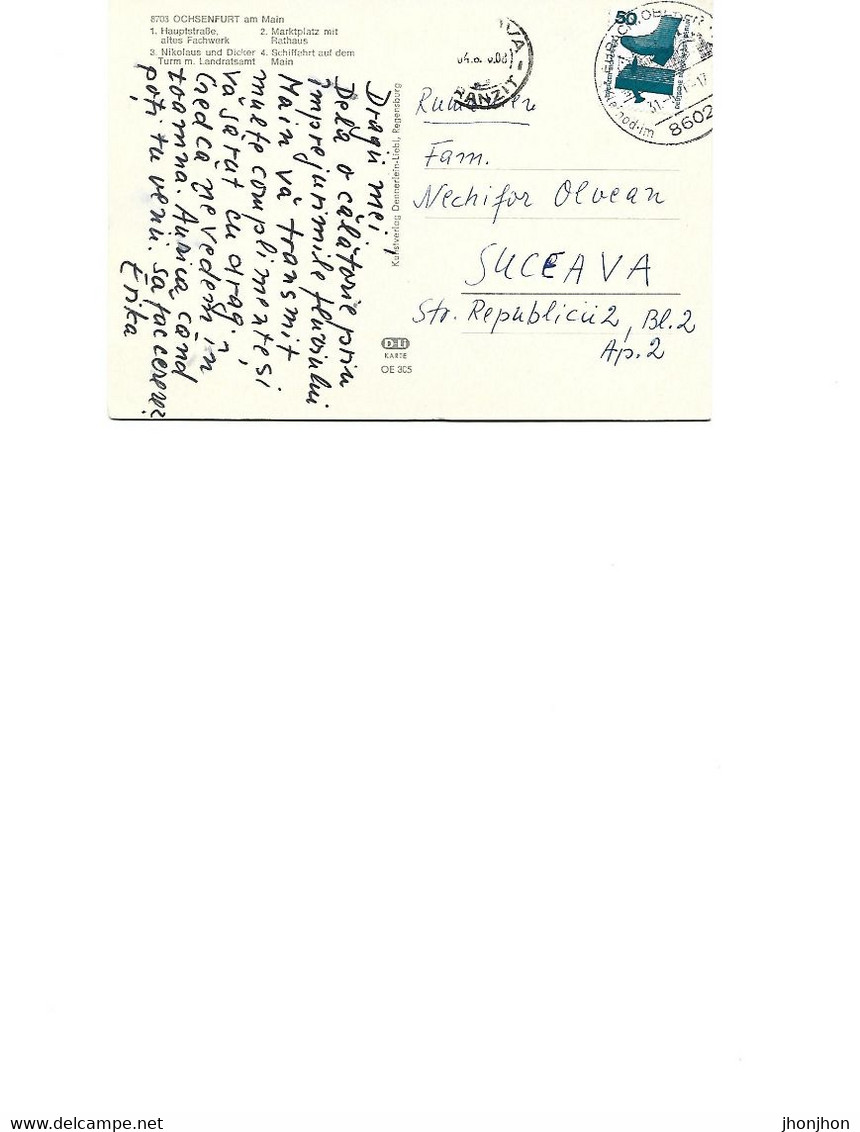 8703 OCHSENFURT am Main
1. Hauptstraße, altes Fachwerk
2. Marktplatz mit Rathaus
3. Nikolaus und Dicker Turm m. Landratsamt
4. Schiffahrt auf dem Main
Dragii mei,
Dela o călătorie prin
împrejurimile fluviului
Main vă transmit
multe complimente și
vă sărut cu drag.
Cred ca ne vedem în
toamna. Aurica când
poți tu veni. Să fac cerere?
Erika
Kunstverlag Dennerlein-Liebl, Regensburg
KARTE
OE 305
TRANZIT
50
8602
Rumänien
Fam.
Nechifor Olvean
SUCEAVA
Str. Republicii 2, Bl. 2
Ap. 2
delcampe.net
jhonjhon